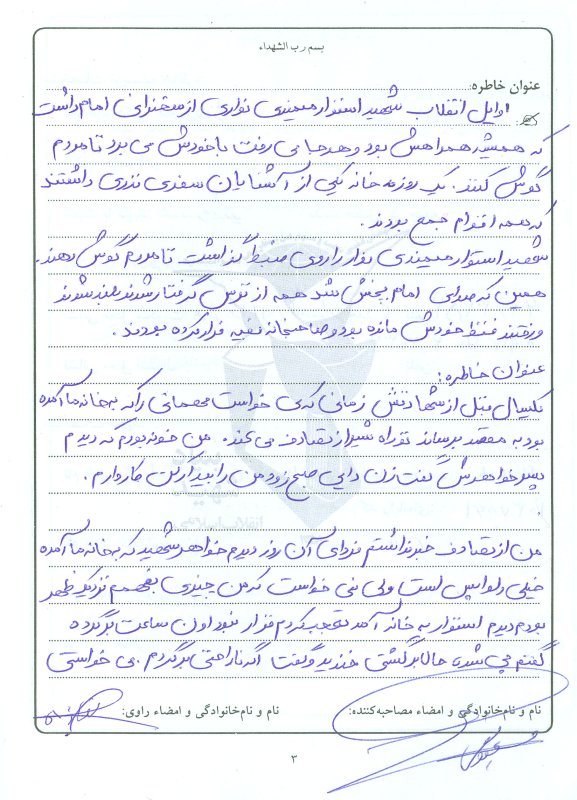 بسم رب الشهداء
عنوان خاطره:
اوایل انقلاب شهید استوار میمندی نواری از سخنرانی امام داشت
که همیشه همراهش بود و هرجا می رفت با خودش می برد تا مردم
گوش کنند. یک روز در خانه یکی از آشنایان سفری نذری داشتند
که همه اقوام جمع بودند.
شهید استوار میمندی نوار را روی ضبط گذاشت تا مردم گوش دهند.
همین که صدای امام پخش شد همه از ترس گرفتار شدن بلند شدند
و رفتند فقط خودش مانده بود و صاحبخانه بقیه فرار کرده بودند.
عنوان خاطره:
یکسال قبل از شهادتش زمانی که می خواست مهمانی را که به خانه ما آمده
بود به مقصد برساند تو راه شیراز تصادف می کند. من خونه بودم که دیدم
پسر خواهرش گفت زن دایی صبح زود من را بیدار کن کار دارم.
من از تصادف خبر نداشتم فردای آن روز دیدم خواهر شهید که به خانه ما آمده
خیلی دلواپس است ولی نمی خواست که من چیزی بفهمم نزدیک ظهر
بود دیدم استوار به خانه آمد تعجب کردم قرار نبود اون ساعت برگرده
گفتم چی شد تا حالا برگشتی خندید و گفت اگه ناراحتی برگردم. می خواستی
نام و نام خانوادگی و امضاء مصاحبه کننده:
نام و نام خانوادگی و امضاء راوی:
۳